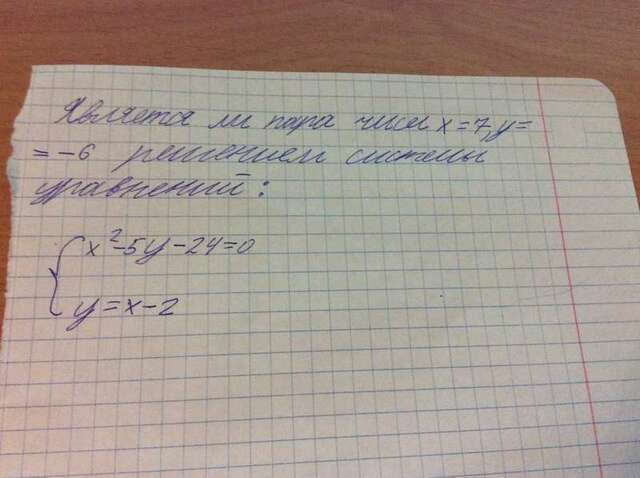 Является ли пара чисел x=7, y=
=-6 решением системы
уравнений:
x²-5y-24=0
y=x-2